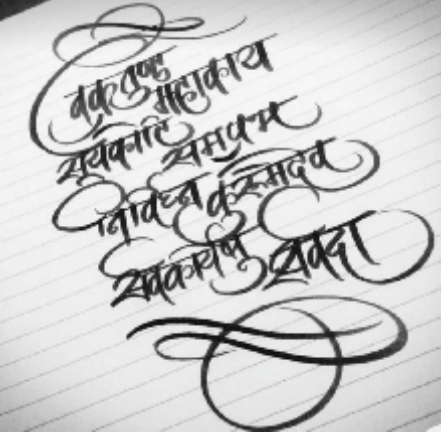 वक्रतुण्ड
महाकाय
सूर्यकोटि
समप्रभ
निर्विघ्नं
कुरुमेदेव
सर्वकार्येषु
सर्वदा